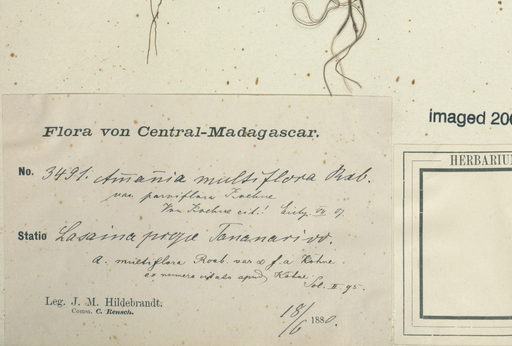 Flora von Central-Madagascar.
No. 3491. Ammannia multiflora Roxb.
var. parviflora Koehne
Statio Lazaina prope Tananarivo.
A. multiflora Roxb var α f a Kohne
ex numero citato apud Kohne
Leg. J. M. Hildebrandt.
Comm. C. Rensch.
18/6 1880.
imaged 200
HERBARIUM